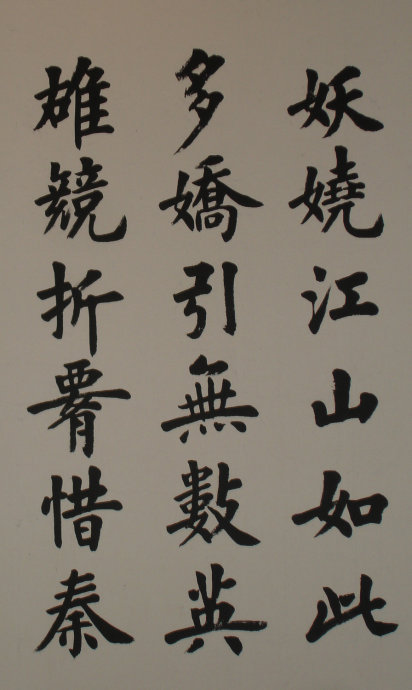 妖嬈江山如此
多嬌引無數英
雄競折腰惜秦